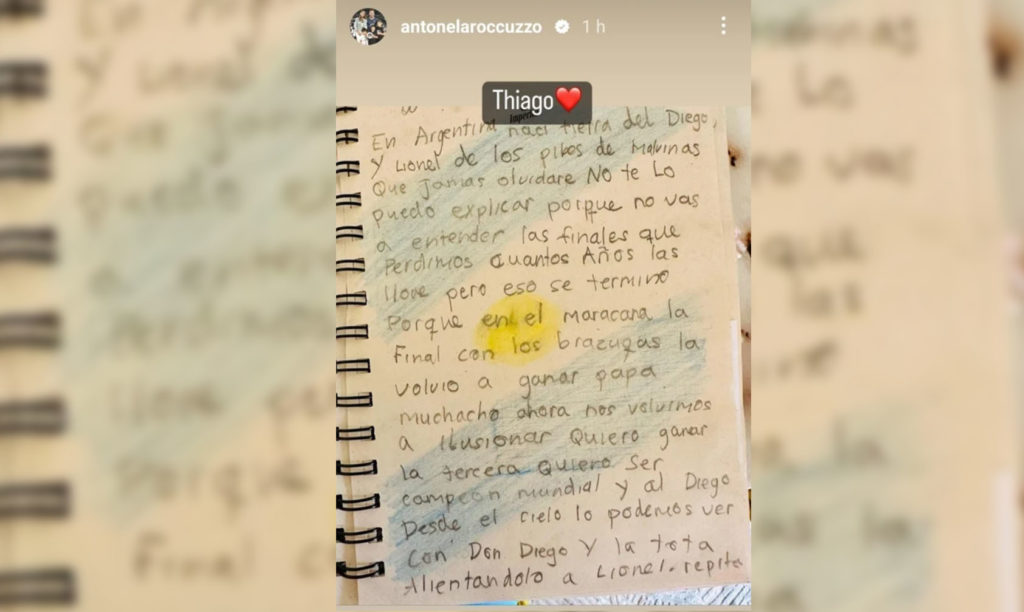 antonelaroccuzzo 1 h
Thiago❤️
En Argentina naci tierra del Diego,
Y Lionel de los pibes de Malvinas
Que jamas olvidare No te Lo
puedo explicar porque no vas
a entender las finales que
Perdimos Cuantos Años las
llore pero eso se termino
Porque en el maracana la
Final con los brazugas la
volvio a ganar papa
muchacho ahora nos volvimos
a ilusionar Quiero ganar
la tercera Quiero Ser
campeon mundial y al Diego
Desde el cielo lo podemos ver
Con Don Diego Y la tota
Alientandolo a Lionel. repita